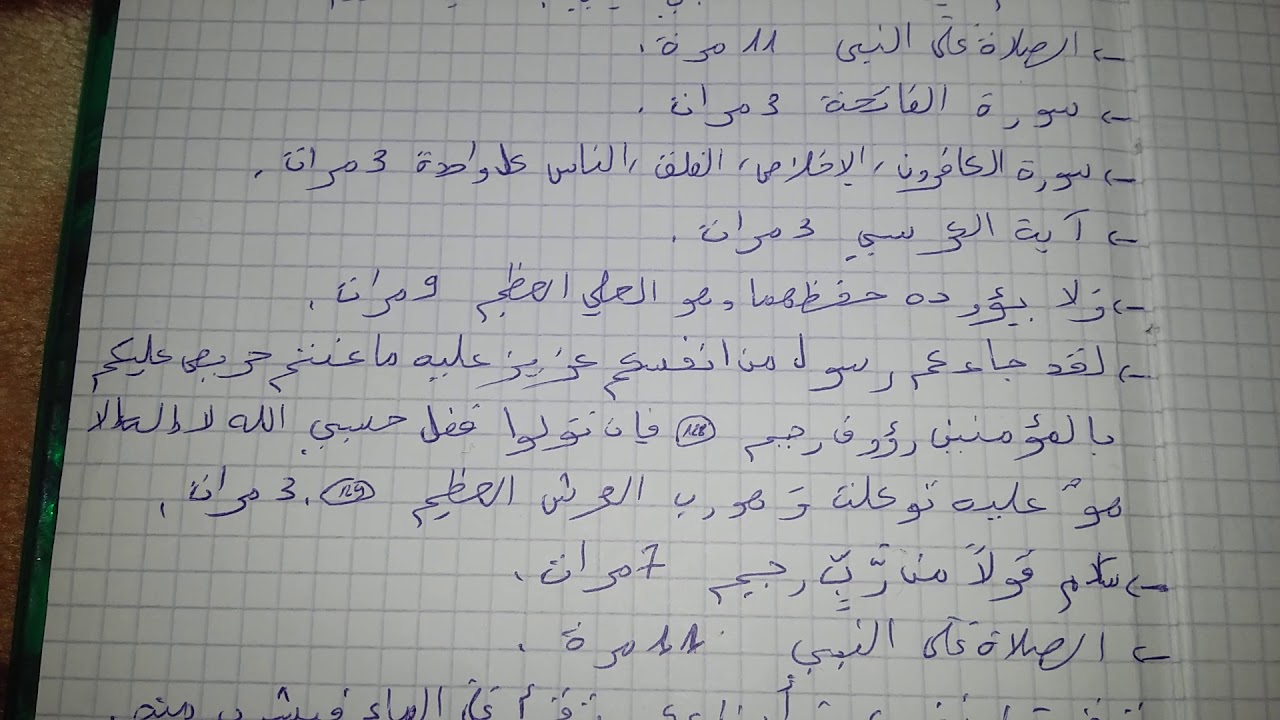 ← الصلاة على النبي 11 مرة.
← سورة الفاتحة 3 مرات.
← سورة الكافرون، الإخلاص، الفلق، الناس كل واحدة 3 مرات.
← آية الكرسي 3 مرات.
← وَلا يؤوده حفظهما وهو العلي العظيم 9 مرات.
← لقد جاءكم رسول من انفسكم عزيز عليه ما عنتم حريص عليكم
بالمؤمنين رؤوف رحيم (128) فإن تولوا فقل حسبي الله لا إله إلا
هو عليه توكلت وَهو رب العرش العظيم (129). 3 مرات.
← سلام قَولاً من رَّبٍّ رحيم 7 مرات.
← الصلاة على النبي 11 مرة.
تقرأ على الماء فيشرب منه.